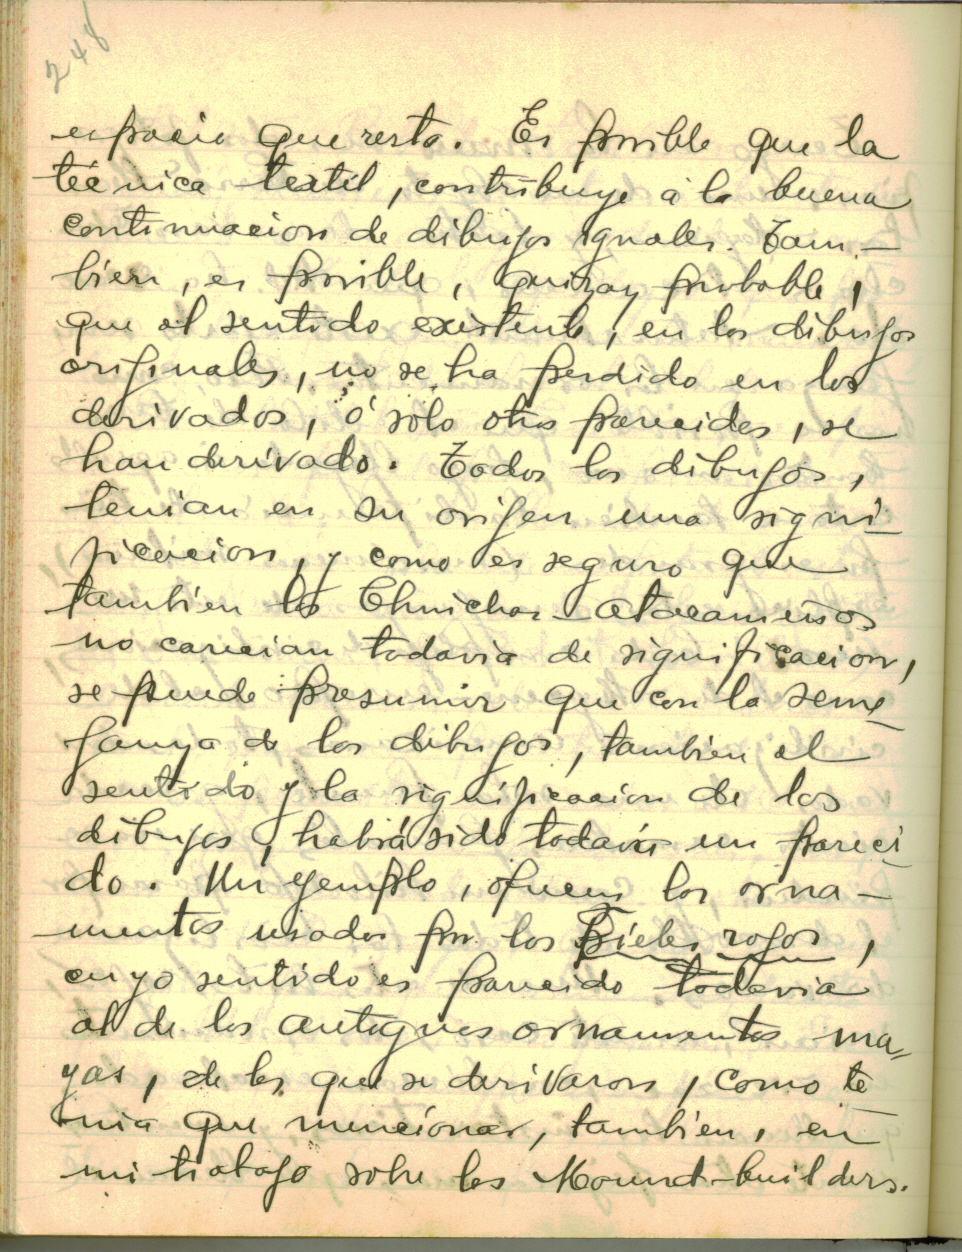 248
espacio que resta. Es posible que la
técnica textil, contribuye á la buena
continuacion de dibujos iguales. Tam-
bien, es posible, quizay probable,
que el sentido existente, en los dibujos
originales, no se ha perdido en los
derivados, ó solo otros parecidos, se
han derivado. Todos los dibujos,
tenian en su origen una signi-
ficacion, y como es seguro que
tambien los Chuichas-atacameños
no carecian todavia de significacion,
se puede presumir que con la seme-
janya de los dibujos, tambien el
sentido y la significacion de los
dibujos, habrá sido todavia un pareci-
do. Un ejemplo, ofrecen los orna-
mentos usados por los Pieles rojos,
cuyo sentido es parecido todavia
al de los antiguos ornamentos ma-
yas, de los que se derivaron, como te
nia que mencionar, tambien, en
mi trabajo sobre los Mound-builders.